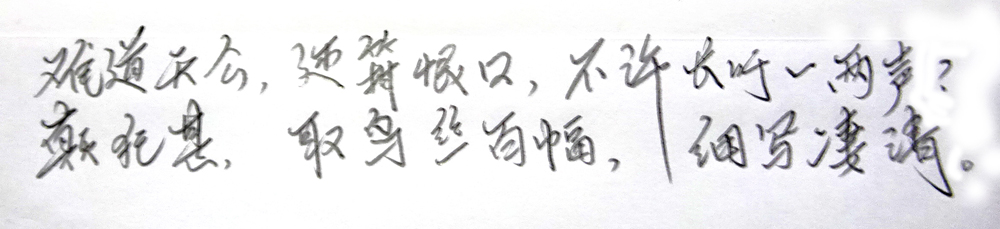 难道天公，还箝恨口，不许长吁一两声？
颠狂甚，取乌丝百幅，细写凄清。